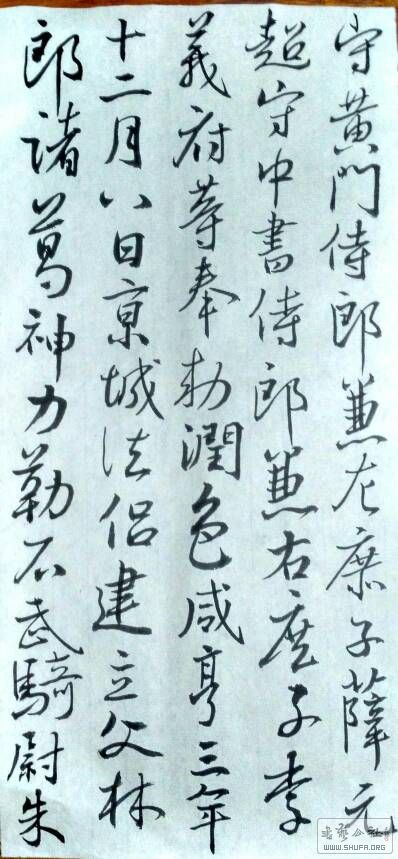 守黄門侍郎兼左庶子薛元
超守中書侍郎兼右庶子李
義府等奉勅潤色咸亨三年
十二月八日京城法侶建立文林
郎諸葛神力勒石武騎尉朱
书艺公社
WWW.SHUFA.ORG